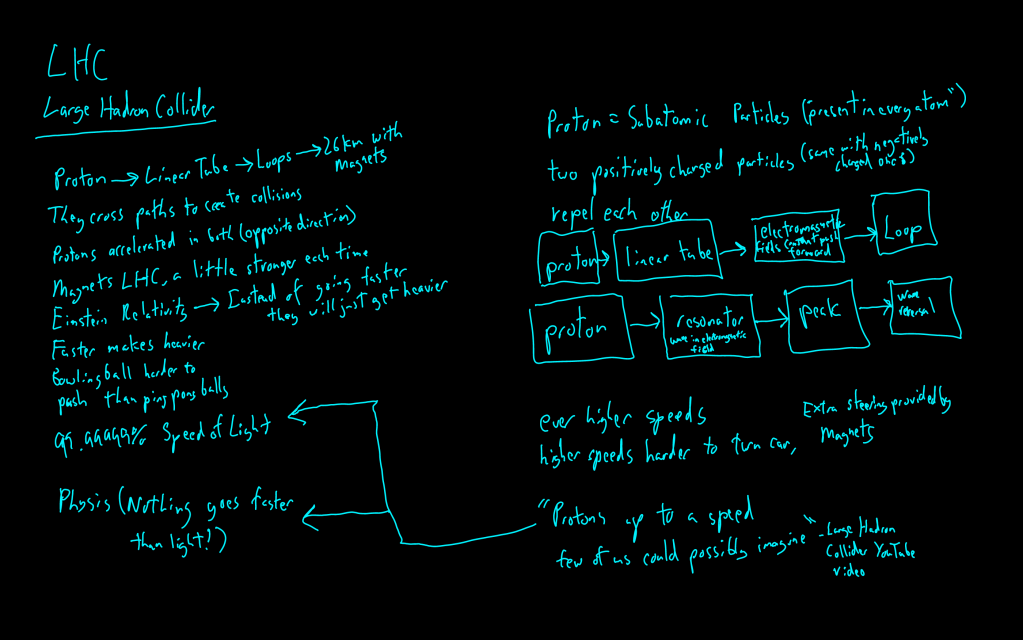 LHC
Large Hadron Collider
Proton → Linear Tube → Loops → 26km with
Magnets
They cross paths to create collisions
Protons accelerated in both (opposite direction)
Magnets LHC, a little stronger each time
Einstein Relativity → Instead of going faster
they will just get heavier
Faster makes heavier
Bowling ball harder to
push than ping pong balls
99.9999% Speed of Light
Physis (Nothing goes faster
than light!)
Proton = Subatomic Particles (present in every atom")
two positively charged particles (same with negatively
charged ones)
repel each other
proton
linear tube
electromagnetic
fields constant push
forward
Loop
proton
resonator
wave in electromagnetic
field
peak
wave
reversal
ever higher speeds
higher speeds harder to turn car,
Extra steering provided by
Magnets
"Protons up to a speed
few of us could possibly imagine" - Large Hadron
Collider YouTube
video